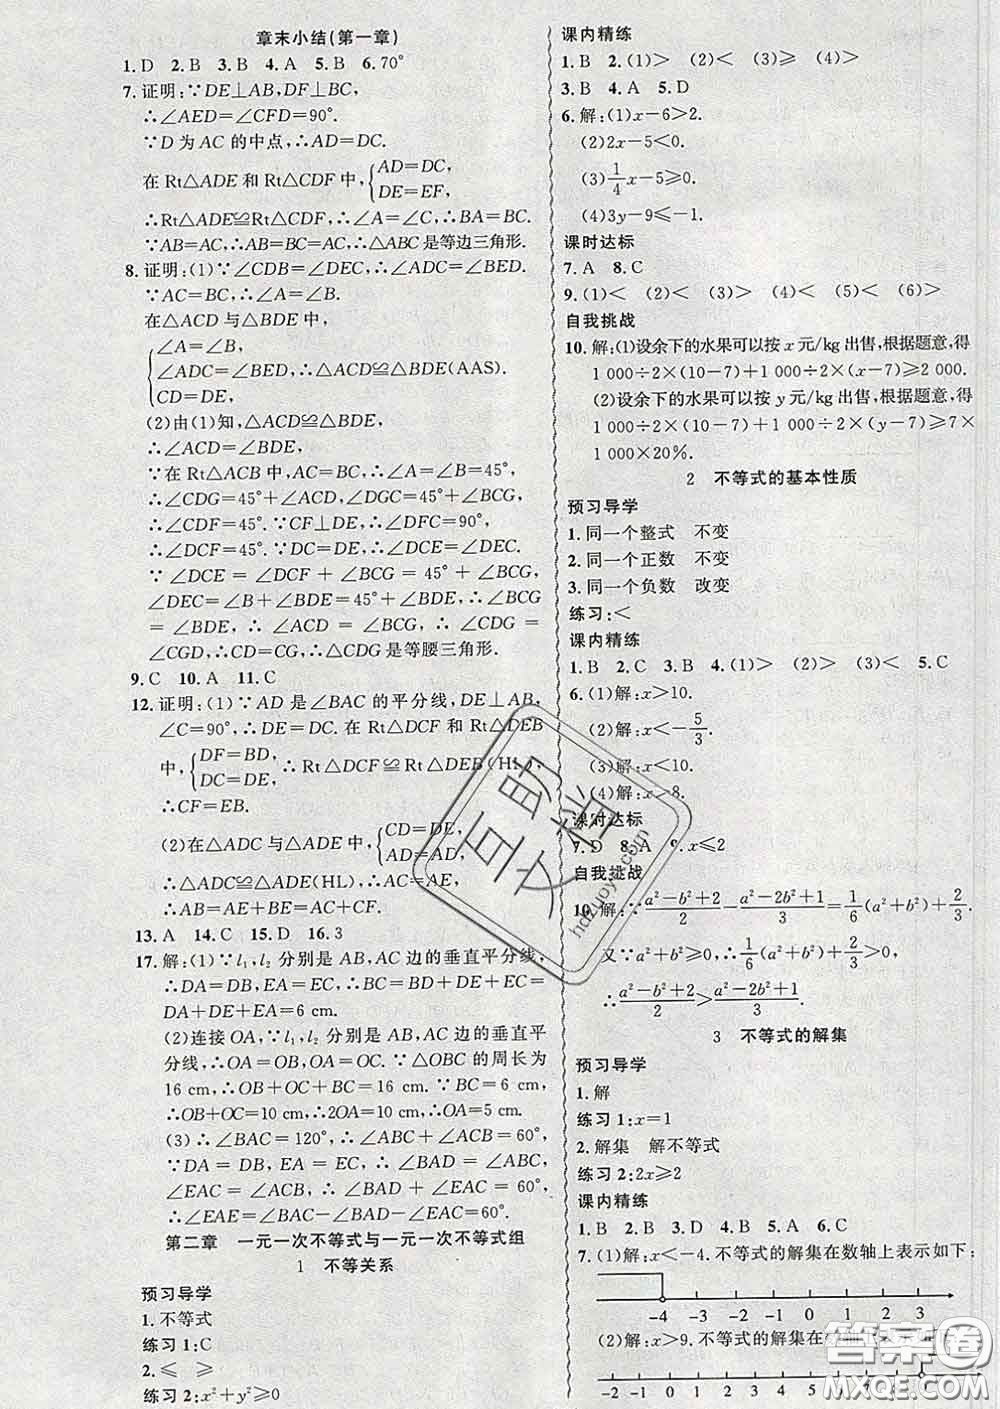 章末小结(第一章)
1.D 2.B 3.B 4.A 5.B 6.70°
7.证明:∵DE⊥AB,DF⊥BC,
∴∠AED=∠CFD=90°.
∵D为AC的中点,∴AD=DC.
在Rt△ADE和Rt△CDF中,{AD=DC,
DE=EF,
∴Rt△ADE≌Rt△CDF,∴∠A=∠C,∴BA=BC.
∵AB=AC,∴AB=BC=AC,∴△ABC是等边三角形.
8.证明:(1)∵∠CDB=∠DEC,∴∠ADC=∠BED.
∵AC=BC,∴∠A=∠B.
在△ACD与△BDE中,
{∠A=∠B,
∠ADC=∠BED,∴△ACD≌△BDE(AAS).
CD=DE,
(2)由(1)知,△ACD≌△BDE,
∴∠ACD=∠BDE,
∵在Rt△ACB中,AC=BC,∴∠A=∠B=45°,
∴∠CDG=45°+∠ACD,∠DGC=45°+∠BCG,
∴∠CDF=45°.∵CF⊥DE,∴∠DFC=90°,
∴∠DCF=45°.∵DC=DE,∴∠DCE=∠DEC.
∵∠DCE=∠DCF+∠BCG=45°+∠BCG,
∠DEC=∠B+∠BDE=45°+∠BDE,∴∠BCG
=∠BDE,∴∠ACD=∠BCG,∴∠CDG=
∠CGD,∴CD=CG,∴△CDG是等腰三角形.
9.C 10.A 11.C
12.证明:(1)∵AD是∠BAC的平分线,DE⊥AB,
∠C=90°,∴DE=DC.在Rt△DCF和Rt△DEB
中,{DF=BD,
DC=DE,∴Rt△DCF≌Rt△DEB(HL),
∴CF=EB.
(2)在△ADC与△ADE中,{CD=DE,
AD=AD,
∴△ADC≌△ADE(HL),∴AC=AE,
∴AB=AE+BE=AC+CF.
13.A 14.C 15.D 16.3
17.解:(1)∵l₁,l₂分别是AB,AC边的垂直平分线,
∴DA=DB,EA=EC,∴BC=BD+DE+EC=
DA+DE+EA=6 cm.
(2)连接OA,∵l₁,l₂分别是AB,AC边的垂直平
分线,∴OA=OB,OA=OC.∵△OBC的周长为
16 cm,∴OB+OC+BC=16 cm.∵BC=6 cm,
∴OB+OC=10 cm,∴2OA=10 cm,∴OA=5 cm.
(3)∴∠BAC=120°,∴∠ABC+∠ACB=60°,
∵DA=DB,EA=EC,∴∠BAD=∠ABC,
∠EAC=∠ACB,∴∠BAD+∠EAC=60°,
∴∠EAE=∠BAC-∠BAD-∠EAC=60°.
第二章 一元一次不等式与一元一次不等式组
1 不等关系
预习导学
1.不等式
练习1:C
2.≤ ≥
练习2:x²+y²≥0
课内精练
1.B 2.(1)> (2)< (3)≥ (4)>
3.B 4.A 5.D
6.解:(1)x-6>2.
(2)2x-5<0.
(3)1/4x-5≥0.
(4)3y-9≤-1.
课时达标
7.A 8.C
9.(1)< (2)< (3)> (4)< (5)< (6)>
自我挑战
10.解:(1)设余下的水果可以按x元/kg出售,根据题意,得
1 000÷2×(10-7)+1 000÷2×(x-7)≥2 000.
(2)设余下的水果可以按y元/kg出售,根据题意,得
1 000÷2×(10-7)+1 000÷2×(y-7)≥7×
1 000×20%.
2 不等式的基本性质
预习导学
1.同一个整式 不变
2.同一个正数 不变
3.同一个负数 改变
练习:<
课内精练
1.B 2.C 3.B 4.(1)> (2)> (3)< 5.C
6.(1)解:x>10.
(2)解:x<-5/3.
(3)解:x<10.
(4)解:x>8.
课时达标
7.D 8.A 9.x≤2
自我挑战
10.解:∵(a²-b²+2)/2-(a²-2b²+1)/3=1/6(a²+b²)+2/3,
又∵a²+b²≥0,∴1/6(a²+b²)+2/3>0,
∴(a²-b²+2)/2>(a²-2b²+1)/3.
3 不等式的解集
预习导学
1.解
练习1:x=1
2.解集 解不等式
练习2:2x≥2
课内精练
1.B 2.B 3.D 4.A 5.A 6.C
7.(1)解:x<-4.不等式的解集在数轴上表示如下:
-4 -3 -2 -1 0 1 2 3
(2)解:x>9.不等式的解集在
-2 -1 0 1 2 3 4 5
互助文档
hdzuoye.com
答案圈
MXQE.COM